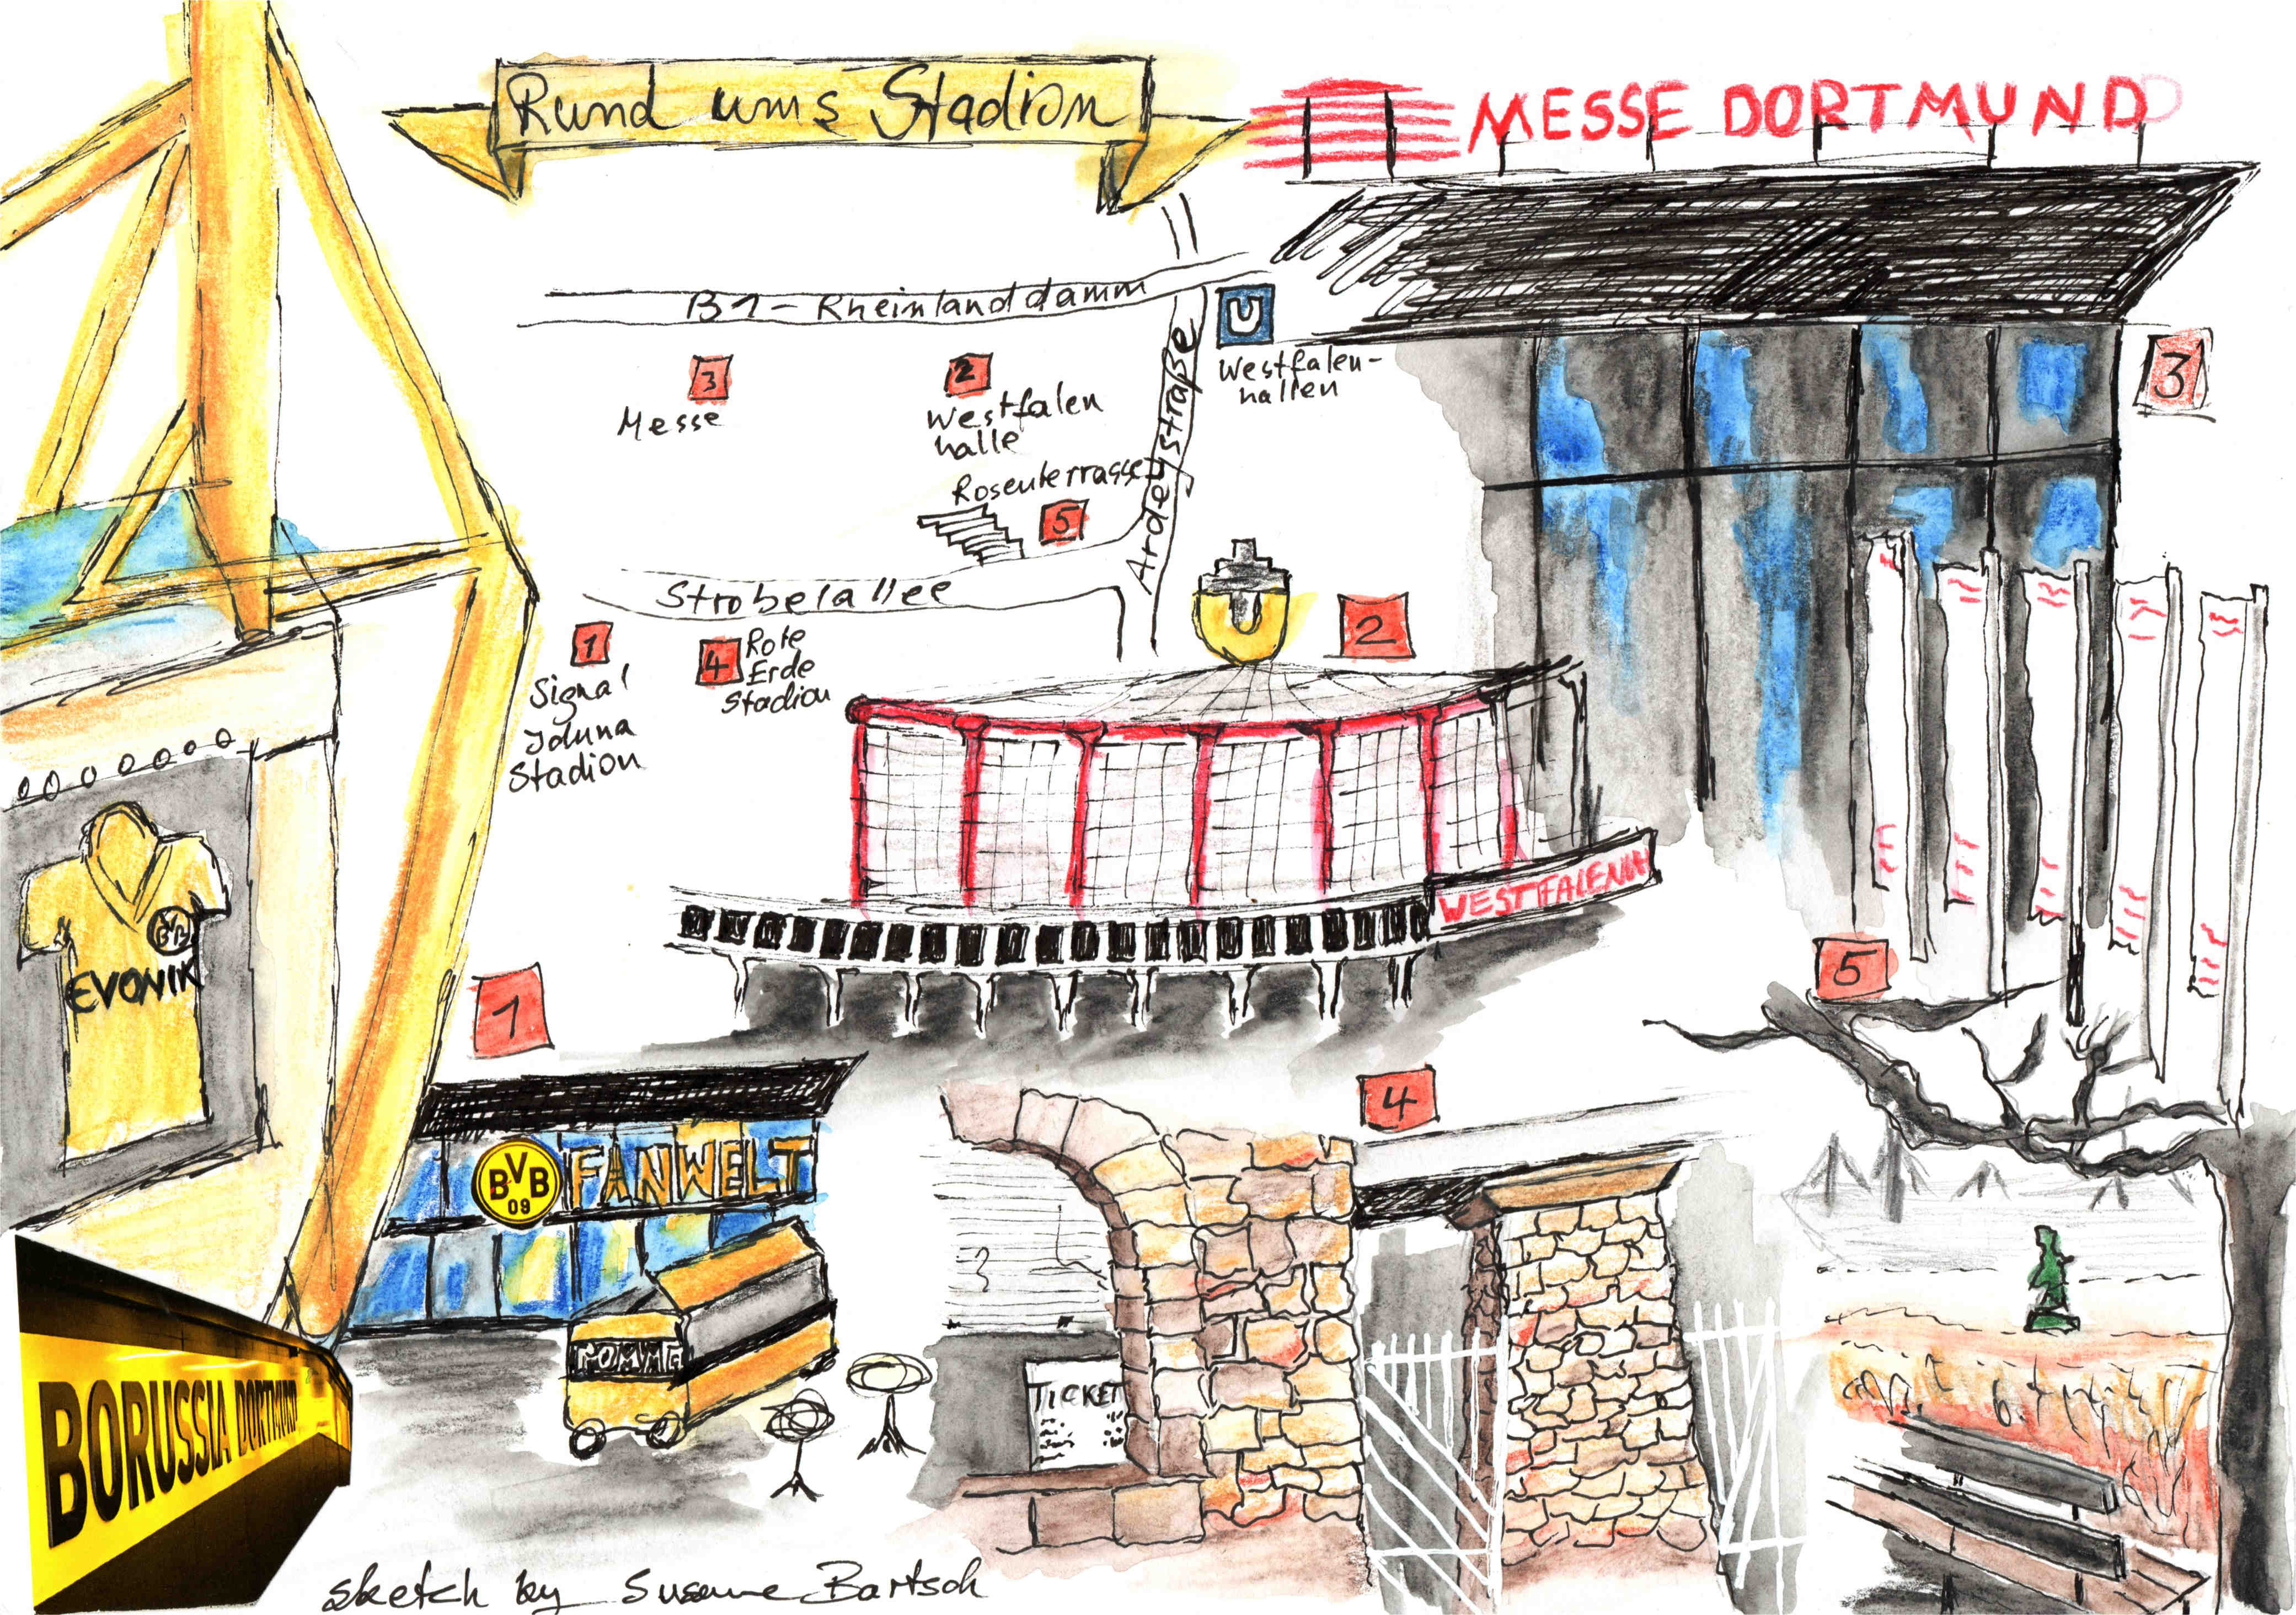 Rund ums Stadion
MESSE DORTMUND
B1 - Rheinlanddamm
U
Westfalen-
hallen
3
Messe
2
Westfalen
halle
Ardeystraße
Rosenterrasse
5
Strobelallee
1
Signal
Iduna
Stadion
4
Rote
Erde
Stadion
3
2
U
WESTFALENH
BVB
EVONIK
1
5
4
BVB
09
FANWELT
POMMES
TICKET
BORUSSIA DORTMUND
sketch by Susanne Bartsch